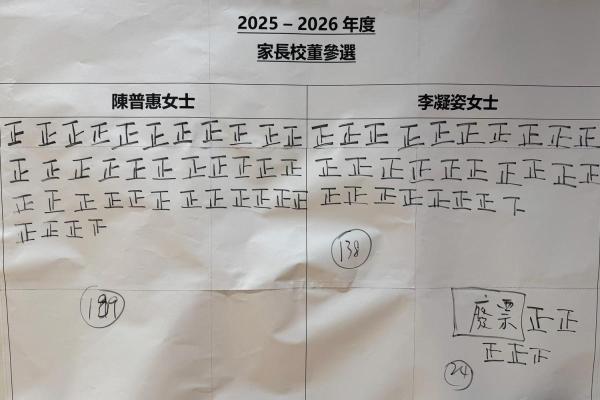 2025 – 2026 年度
家長校董參選
陳普惠女士
李凝姿女士
正正正正正正正正正正正
正正正正正正正正正正正正
正正正正正正正正正正正
正正正下
189
正正正正正正正正正正
正正正正正正正正正正
正正正正正正正下
138
廢票 正正
正正下
24